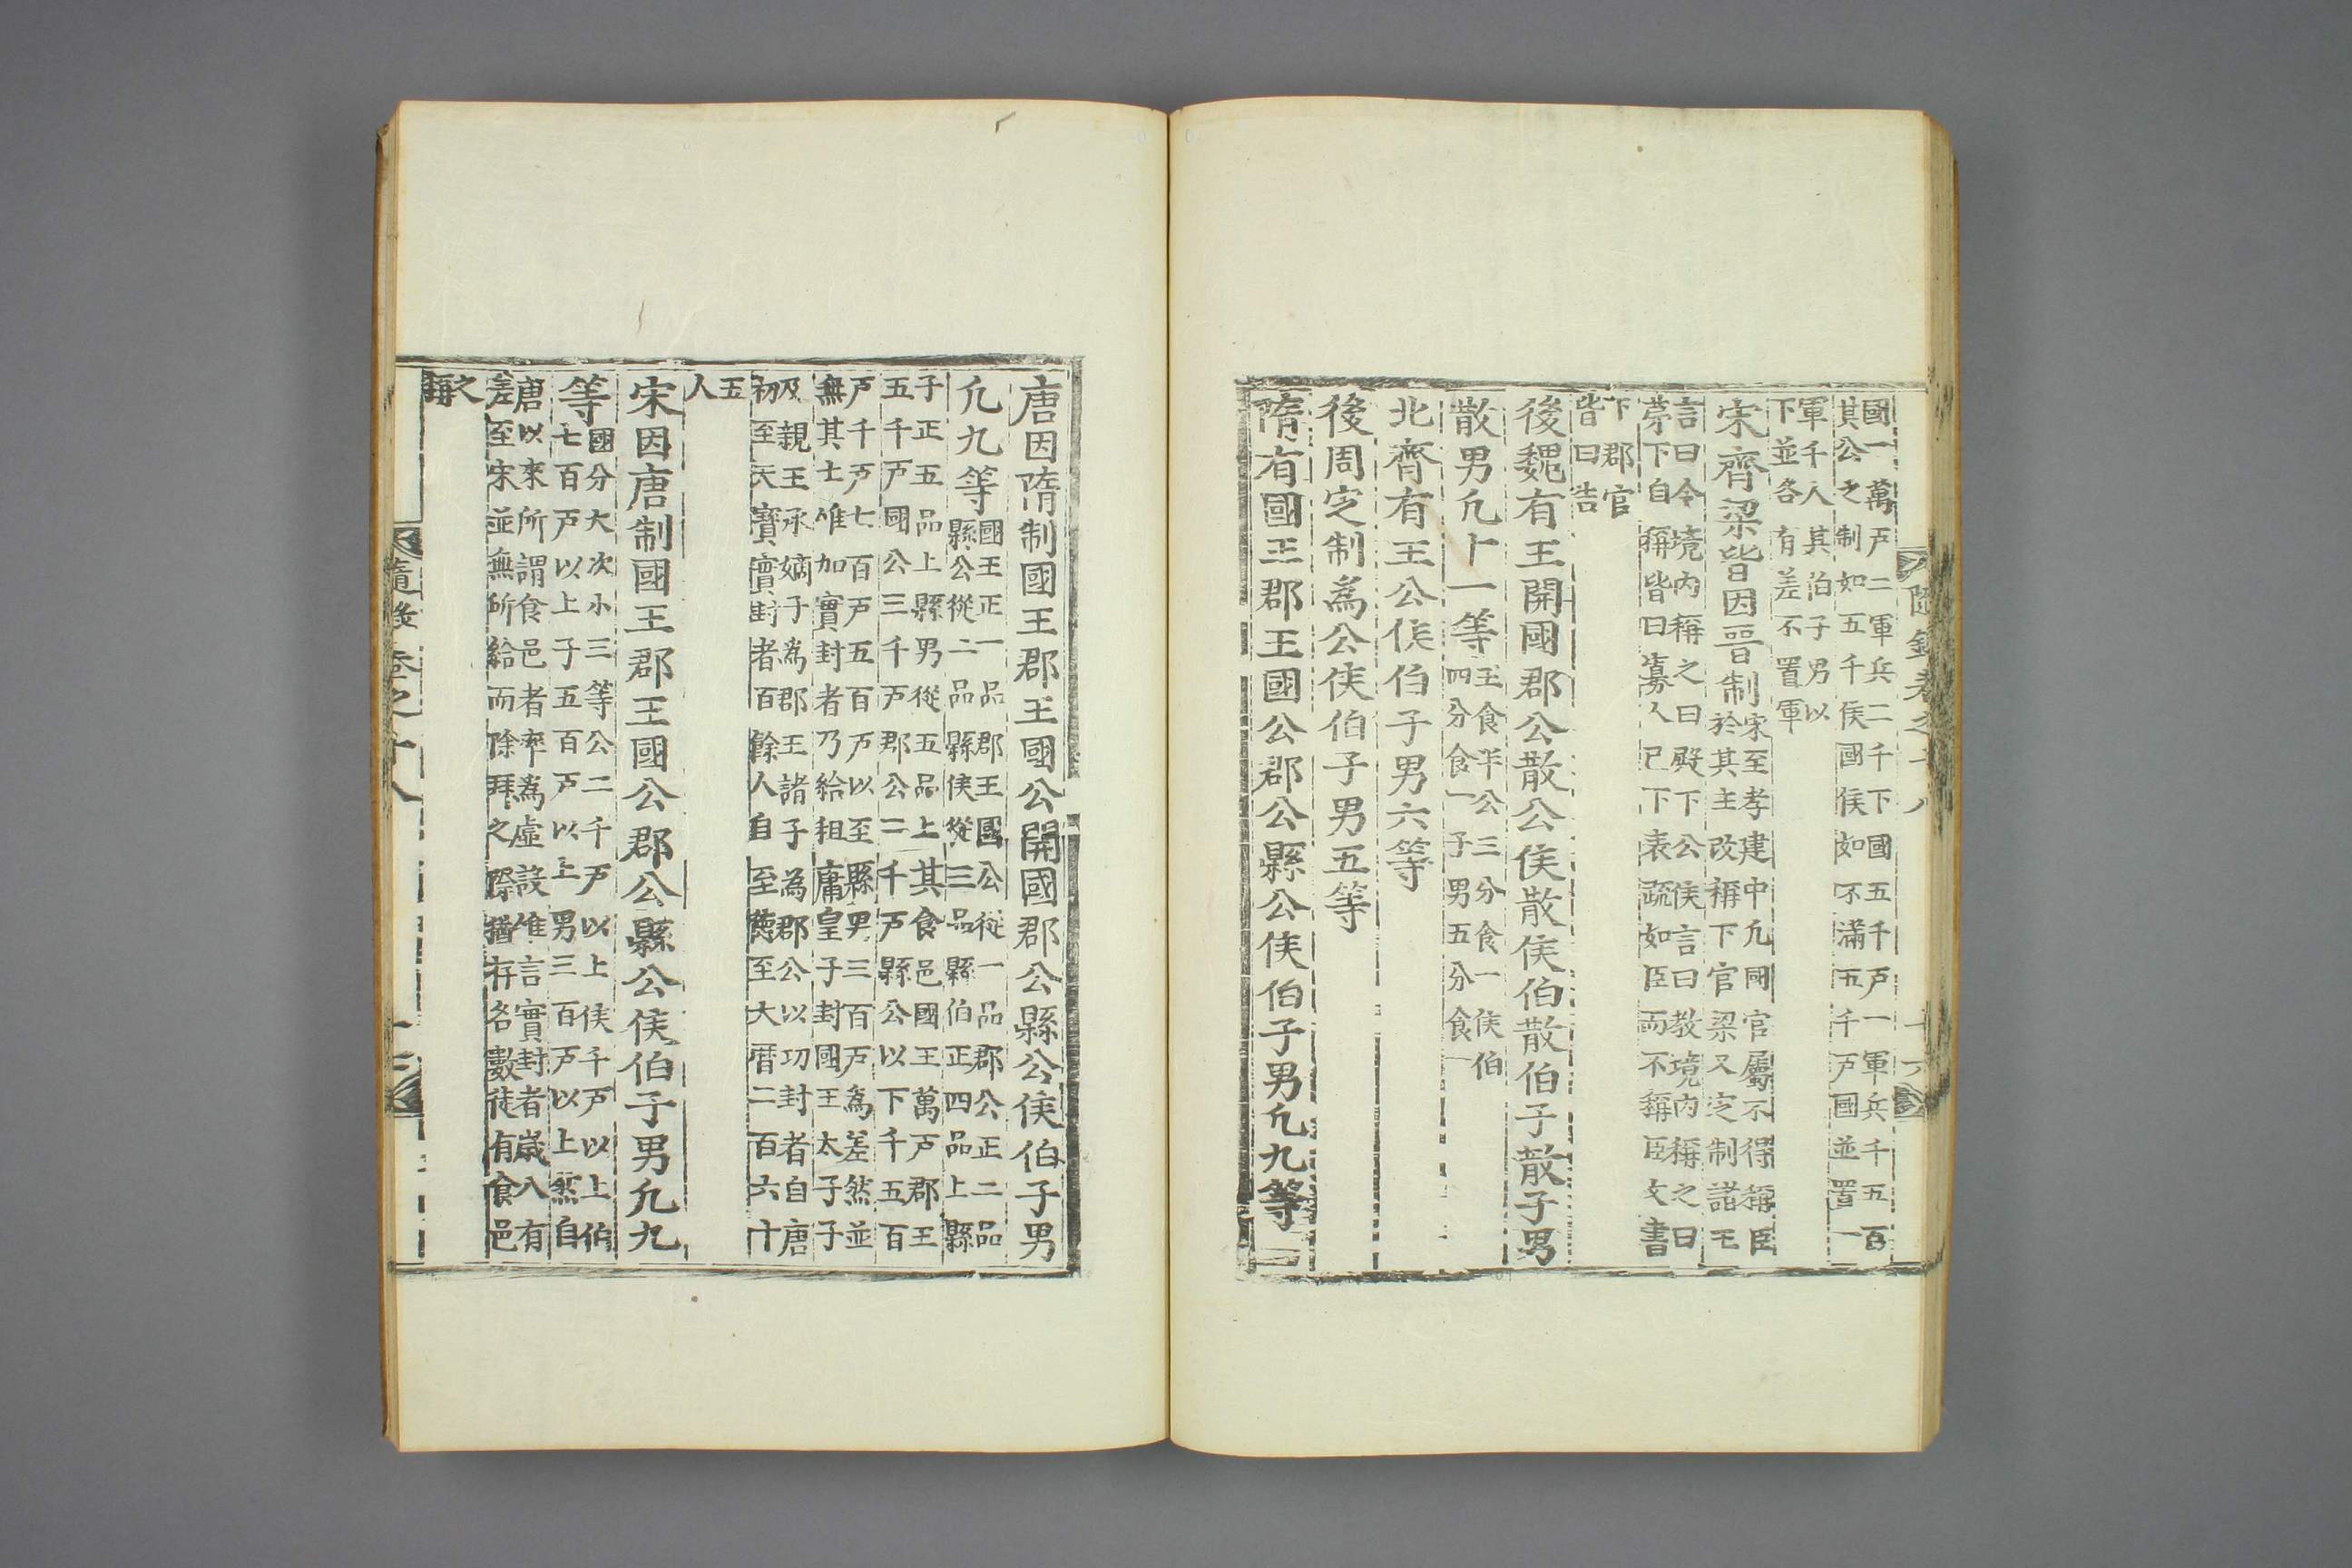 國一萬戶二軍兵二千下國五千戶一軍兵千五百
其公之制如五千侯國侯如不滿五千戶國並置一
軍千人其伯子男以
下並各有差不置軍
宋齊梁皆因晉制
宋至孝建中凢國官屬不得稱臣
於其主改稱下官梁又定制諸王
言曰令境内稱之曰殿下公侯言曰教境内稱之曰
苐下自稱皆曰寡人已下表疏如臣而不稱臣文書
下郡官
皆曰告
後魏有王開國郡公散公侯散侯伯散伯子散子男
散男凢十一等
王食半公三分食一侯伯
四分食一子男五分食一
北齊有王公侯伯子男六等
後周定制爲公侯伯子男五等
隋有國王郡王國公郡公縣公侯伯子男凢九等
唐因隋制國王郡王國公開國郡公縣公侯伯子男
凢九等
國王正一品郡王國公從一品郡公正二品
縣公從二品縣侯從三品縣伯正四品上縣
子正五品上縣男從五品上其食邑國王萬戶郡王
五千戶國公三千戶郡公二千戶縣公以下千五百
戶千戶七百戶五百戶以至縣男三百戶為差然並
無其士惟加實封者乃給租庸皇子封國王太子子
及親王承嫡子為郡王諸子為郡公以功封者自唐
初至天寶實封者百餘人自至德至大曆二百六十
五
人
宋因唐制國王郡王國公郡公縣公侯伯子男凢九
等
國分大次小三等公二千戶以上侯千戶以上伯
七百戶以上子五百戶以上男三百戶以上然自
唐以來所謂食邑者率為虛設惟言實封者歲入有
差至宋並無所給而除拜之際猶存各數徒有食邑
之
稱